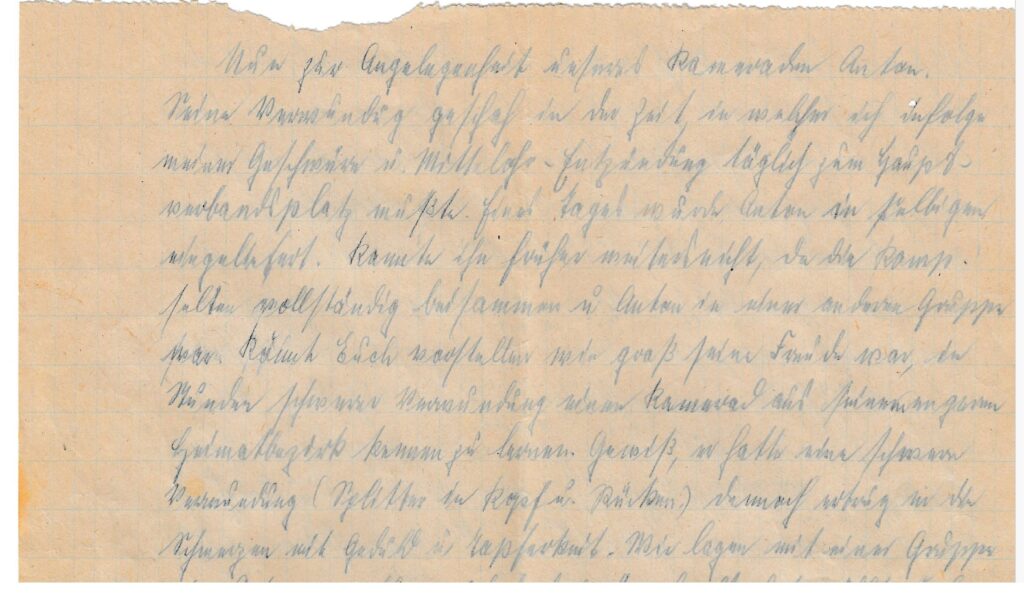 Nun zur Angelegenheit unseres Kameraden Anton.
Seine Verwundung geschah in der Zeit, in welcher ich infolge
meiner Geschwüre u. Mittelohr-Entzündung täglich zum Haupt-
verbandsplatz mußte. Eines Tages wurde Anton in selbigen
eingeliefert. Kannte ihn früher weiters nicht, da die Komp.
selten vollständig beisammen u Anton in einer anderen Gruppe
war. Könnt Euch vorstellen wie groß seine Freude war, in
Stunden schwerer Verwundung einen Kamerad aus seinem engeren
Heimatbezirk kennen zu lernen. Gewiß, er hatte eine schwere
Verwundung (Splitter in Kopf u. Rücken.) dennoch ertrug er die
Schmerzen mit Geduld u. Tapferkeit. Wir lagen mit einer Gruppe